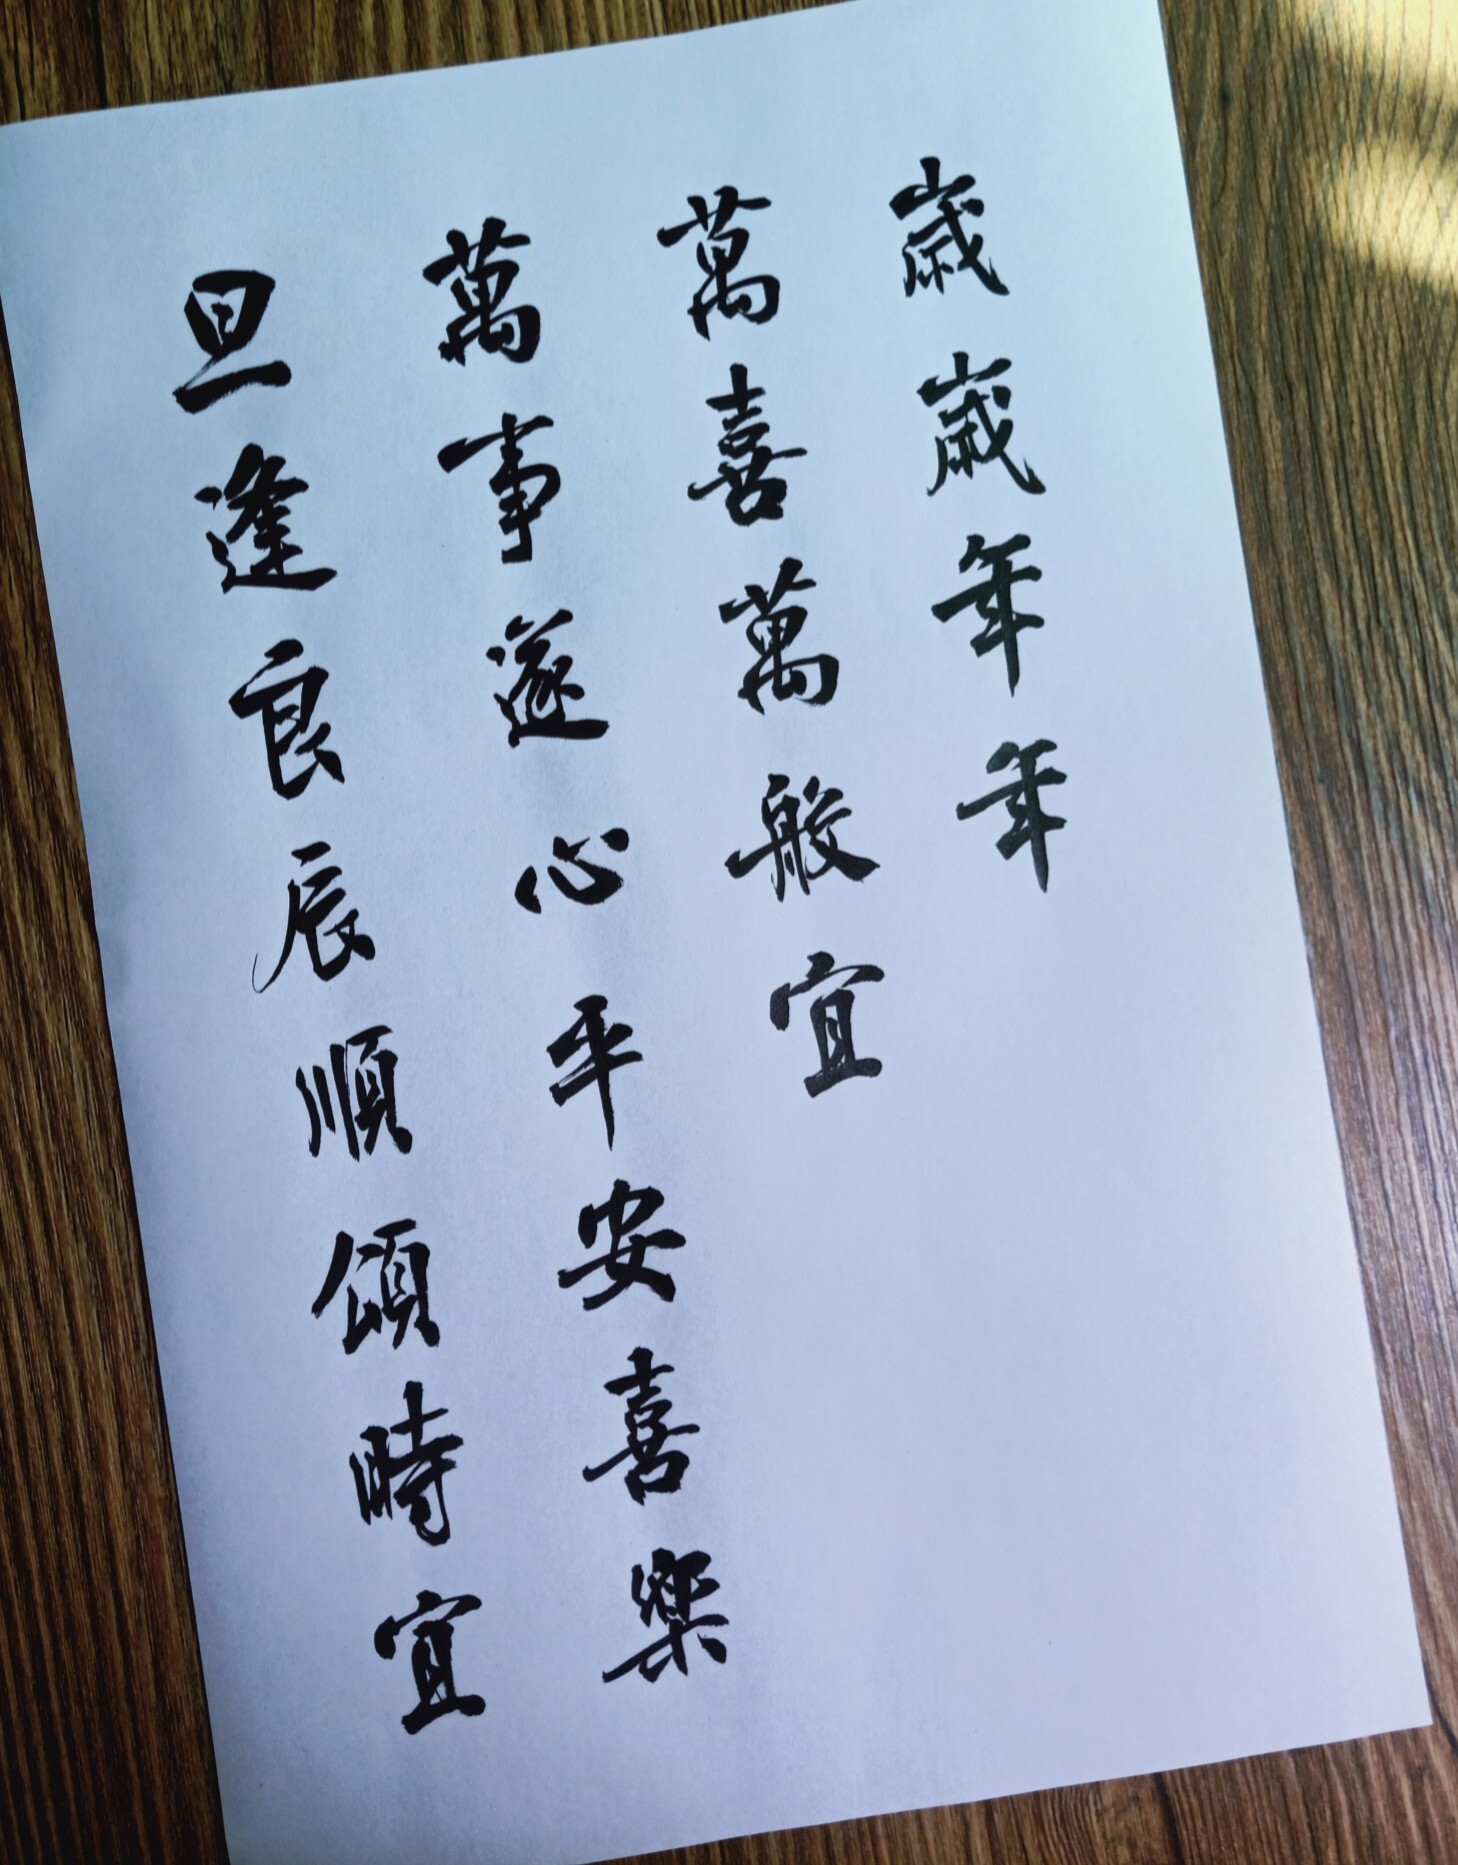 歲歲年年
萬喜萬般宜
萬事遂心平安喜樂
旦逢良辰順頌時宜